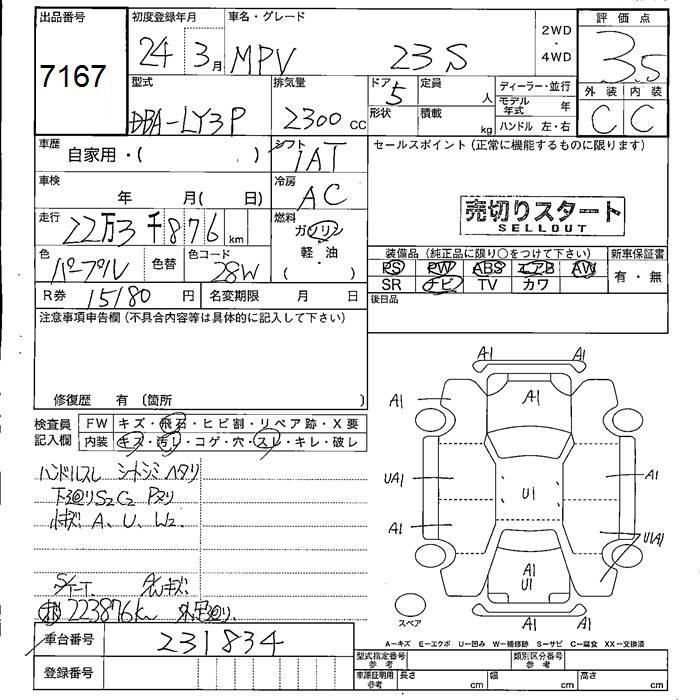 出品番号
7167
初度登録年月
24 3月
車名・グレード
MPV 23S
2WD
・
4WD
評価点
3.5
外装 内装
C C
型式
DBA-LY3P
排気量
2300 cc
ドア
5
形状
定員
人
積載
kg
ディーラー・並行
モデル年式 年
ハンドル 左・右
車歴
自家用・( )
シフト
IAT
車検
年 月( 日)
冷房
AC
走行
22万3千876km
燃料
ガソリン
軽・油
( )
色
パープル
色替
色コード
28W
R券 15180 円
名変期限 月 日
セールスポイント(正常に機能するものに限ります)
売切りスタート
SELLOUT
装備品(純正品に限り〇をつけて下さい)
新車保証書
PS PW ABS エアB AW
SR ナビ TV カワ
有・無
後日品
注意事項申告欄(不具合内容等は具体的に記入して下さい)
修復歴 有(箇所 )
検査員記入欄
FW キズ・飛石・ヒビ割・リペア跡・X要
内装 キズ・汚レ・コゲ・穴・スレ・キレ・破レ
ハンドルスレ シートシミ ヘタリ
下廻りS2C2 Pヌリ
小キズ A、U、W2
223876km
車台番号 231834
登録番号
A1 A1
A1 A1
UA1 A1
U1
A1 U1A1
A1
U1
A1 A1
スペア
A-キズ E-エクボ U-凹み W-補修跡 S-サビ C-腐食 XX-交換済
型式指定番号
参考
類別区分番号
参考
車庫証明用
参考
長さ cm 幅 cm 高さ cm